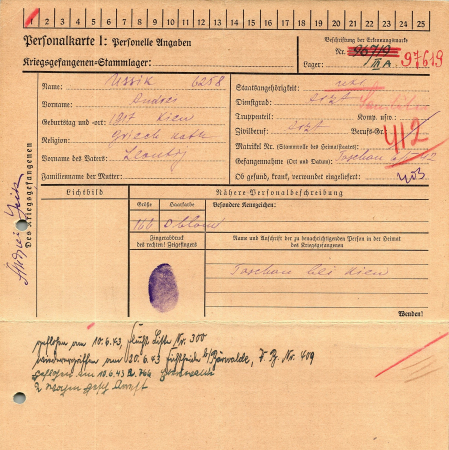 1 2 3 4 5 6 7 8 9 10 11 12 13 14 15 16 17 18 19 20 21 22 23 24 25
Personalkarte I: Personelle Angaben
Kriegsgefangenen-Stammlager:
Beschriftung der Erkennungsmarke
Nr. 96719 97619
Lager: III A.
Des Kriegsgefangenen
Name: Ussik 6258
Vorname: Andrei
Geburtstag und -ort: 1917 Kiew
Religion: Griech. kath.
Vorname des Vaters:
Familienname der Mutter:
Staatsangehörigkeit:
Dienstgrad: Arzt
Truppenteil: Komp. usw.:
Zivilberuf: Arzt Berufs-Gr.:
412
Matrikel Nr. (Stammrolle des Heimatstaates):
Gefangennahme (Ort und Datum):
Ob gesund, krank, verwundet eingeliefert: 403
Lichtbild
Nähere Personalbeschreibung
Größe Haarfarbe Besondere Kennzeichen:
166 blond
Fingerabdruck
des rechten! Zeigefingers
Name und Anschrift der zu benachrichtigenden Person in der Heimat
des Kriegsgefangenen
Taschan bei Kiew
Wenden!
geflohen am 10.6.43, Nr. 300
wiederergriffen am 20.6.43 Bärwalde, Nr. 409
am 10.6.43
2 Wochen